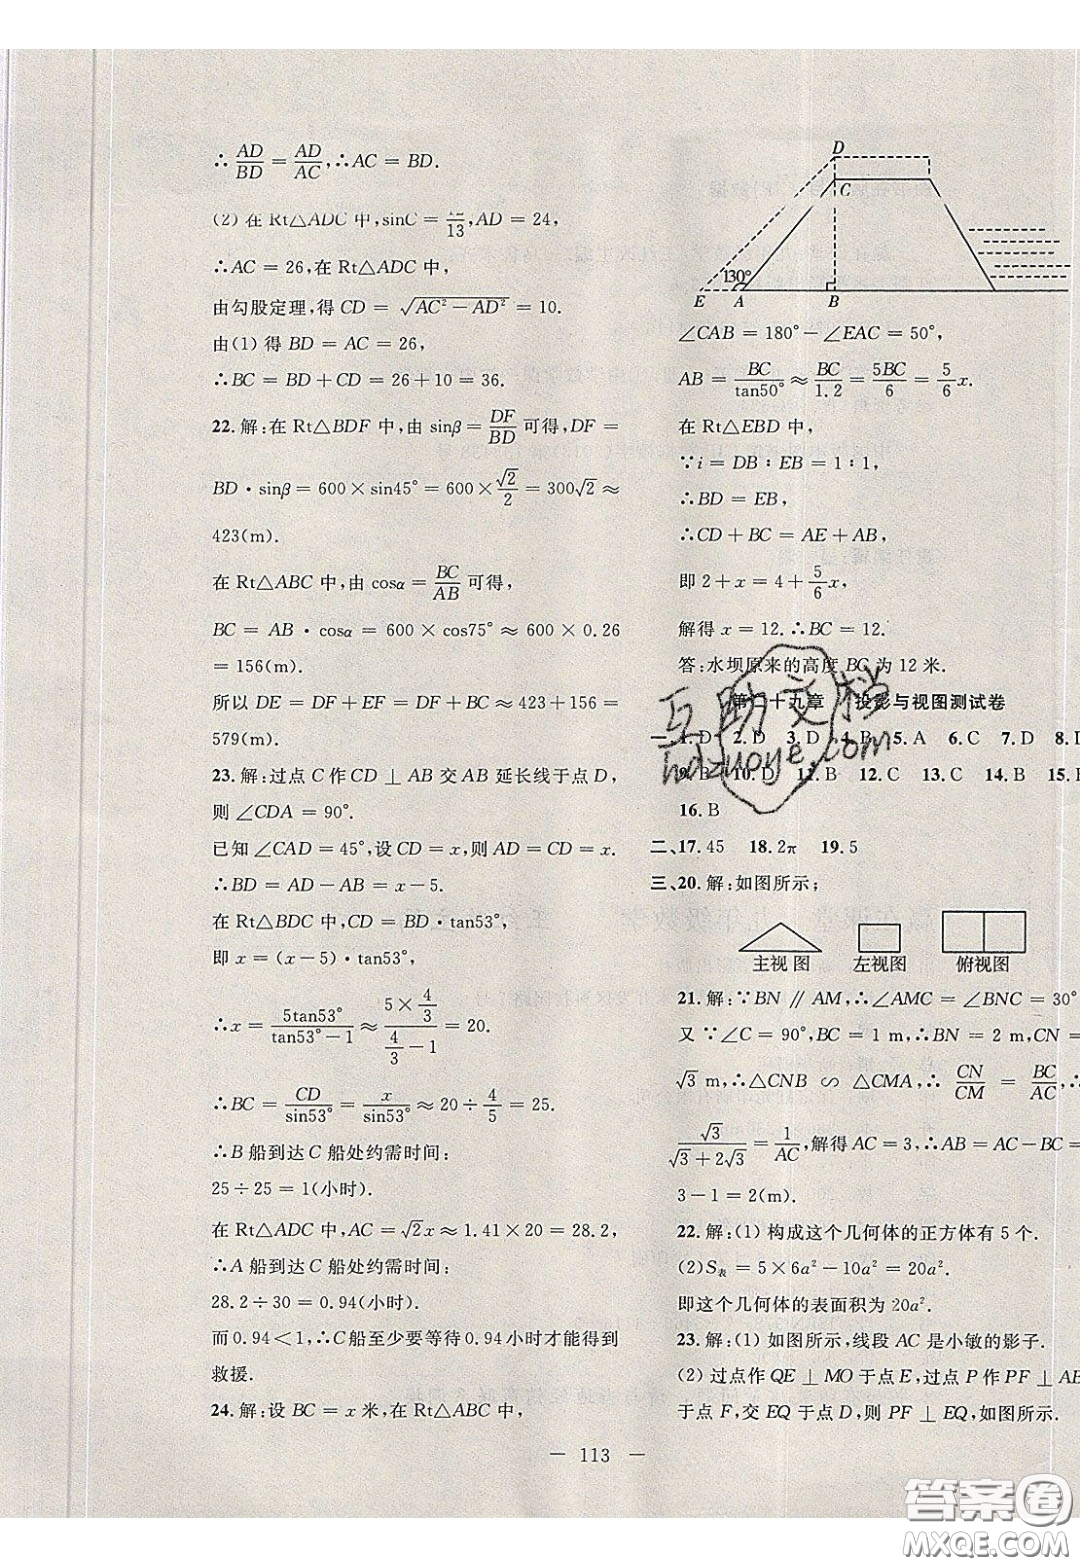 ∴AD/BD=AD/AC,∴AC=BD.
(2) 在 Rt△ADC 中,sinC=12/13,AD=24,
∴AC=26,在 Rt△ADC 中,
由勾股定理,得 CD=√(AC²-AD²)=10.
由(1) 得 BD=AC=26,
∴BC=BD+CD=26+10=36.
22.解:在 Rt△BDF 中,由 sinβ=DF/BD 可得,DF=
BD·sinβ=600×sin45°=600×√2/2=300√2≈
423(m).
在 Rt△ABC 中,由 cosα=BC/AB 可得,
BC=AB·cosα=600×cos75°≈600×0.26
=156(m).
所以 DE=DF+EF=DF+BC≈423+156=
579(m).
23.解:过点 C 作 CD⊥AB 交 AB 延长线于点 D,
则∠CDA=90°.
已知∠CAD=45°,设 CD=x,则 AD=CD=x.
∴BD=AD-AB=x-5.
在 Rt△BDC 中,CD=BD·tan53°,
即 x=(x-5)·tan53°,
∴x=5tan53°/(tan53°-1)≈(5×4/3)/(4/3-1)=20.
∴BC=CD/sin53°=x/sin53°≈20÷4/5=25.
∴B 船到达 C 船处约需时间:
25÷25=1(小时).
在 Rt△ADC 中,AC=√2x≈1.41×20=28.2,
∴A 船到达 C 船处约需时间:
28.2÷30=0.94(小时).
而 0.94<1,∴C 船至少要等待 0.94 小时才能得到
救援.
24.解:设 BC=x 米,在 Rt△ABC 中,
D
C
130°
E A B
∠CAB=180°-∠EAC=50°,
AB=BC/tan50°≈BC/1.2=5BC/6=5/6x.
在 Rt△EBD 中,
∵i=DB:EB=1:1,
∴BD=EB,
∴CD+BC=AE+AB,
即 2+x=4+5/6x,
解得 x=12.∴BC=12.
答:水坝原来的高度 BC 为 12 米.
第二十九章 投影与视图测试卷
一、1.D 2.D 3.D 4.B 5.A 6.C 7.D 8.D
9.B 10.D 11.B 12.C 13.C 14.B 15.B
16.B
二、17.45 18.2π 19.5
三、20.解:如图所示;
主视图 左视图 俯视图
21.解:∵BN∥AM,∴∠AMC=∠BNC=30°
又∵∠C=90°,BC=1 m,∴BN=2 m,CN=
√3 m,∴△CNB∽△CMA,∴CN/CM=BC/AC,
√3/(√3+2√3)=1/AC,解得 AC=3,∴AB=AC-BC=
3-1=2(m).
22.解:(1) 构成这个几何体的正方体有 5 个.
(2)S表=5×6a²-10a²=20a².
即这个几何体的表面积为 20a².
23.解:(1) 如图所示,线段 AC 是小敏的影子.
(2) 过点作 QE⊥MO 于点 E,过点 P 作 PF⊥AB
于点 F,交 EQ 于点 D,则 PF⊥EQ,如图所示.
— 113 —
互助文档
hdzuoye.com
答案卷
MXQE.COM